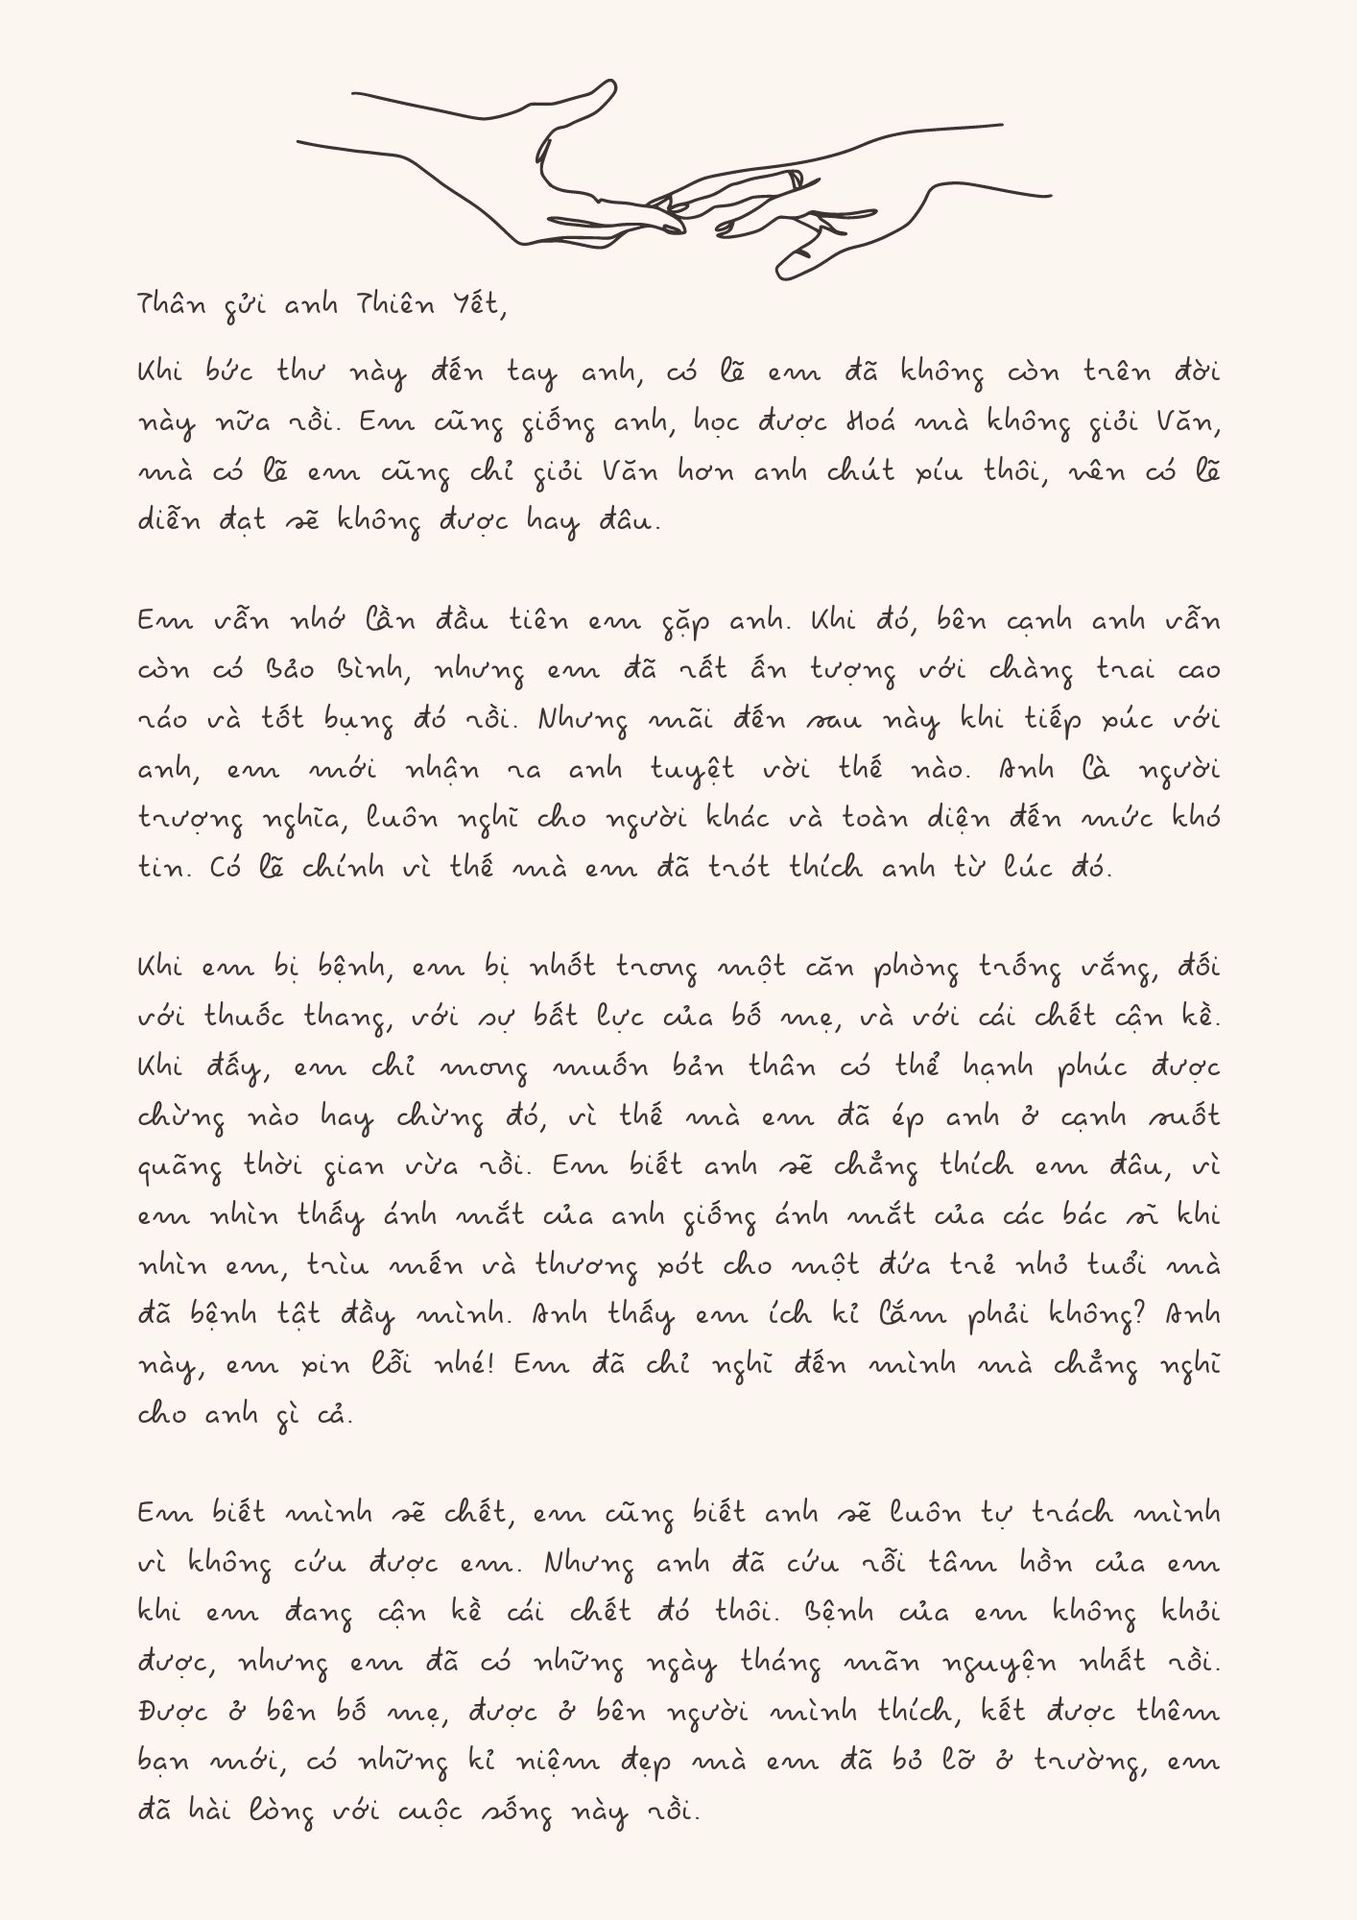 Thân gửi anh Thiên Yết,
Khi bức thư này đến tay anh, có lẽ em đã không còn trên đời
này nữa rồi. Em cũng giống anh, học được Hoá mà không giỏi Văn,
mà có lẽ em cũng chỉ giỏi Văn hơn anh chút xíu thôi, nên có lẽ
diễn đạt sẽ không được hay đâu.
Em vẫn nhớ lần đầu tiên em gặp anh. Khi đó, bên cạnh anh vẫn
còn có Bảo Bình, nhưng em đã rất ấn tượng với chàng trai cao
ráo và tốt bụng đó rồi. Nhưng mãi đến sau này khi tiếp xúc với
anh, em mới nhận ra anh tuyệt vời thế nào. Anh là người
trượng nghĩa, luôn nghĩ cho người khác và toàn diện đến mức khó
tin. Có lẽ chính vì thế mà em đã trót thích anh từ lúc đó.
Khi em bị bệnh, em bị nhốt trong một căn phòng trống vắng, đối
với thuốc thang, với sự bất lực của bố mẹ, và với cái chết cận kề.
Khi đấy, em chỉ mong muốn bản thân có thể hạnh phúc được
chừng nào hay chừng đó, vì thế mà em đã ép anh ở cạnh suốt
quãng thời gian vừa rồi. Em biết anh sẽ chẳng thích em đâu, vì
em nhìn thấy ánh mắt của anh giống ánh mắt của các bác sĩ khi
nhìn em, trìu mến và thương xót cho một đứa trẻ nhỏ tuổi mà
đã bệnh tật đầy mình. Anh thấy em ích kỉ lắm phải không? Anh
này, em xin lỗi nhé! Em đã chỉ nghĩ đến mình mà chẳng nghĩ
cho anh gì cả.
Em biết mình sẽ chết, em cũng biết anh sẽ luôn tự trách mình
vì không cứu được em. Nhưng anh đã cứu rỗi tâm hồn của em
khi em đang cận kề cái chết đó thôi. Bệnh của em không khỏi
được, nhưng em đã có những ngày tháng mãn nguyện nhất rồi.
Được ở bên bố mẹ, được ở bên người mình thích, kết được thêm
bạn mới, có những kỉ niệm đẹp mà em đã bỏ lỡ ở trường, em
đã hài lòng với cuộc sống này rồi.